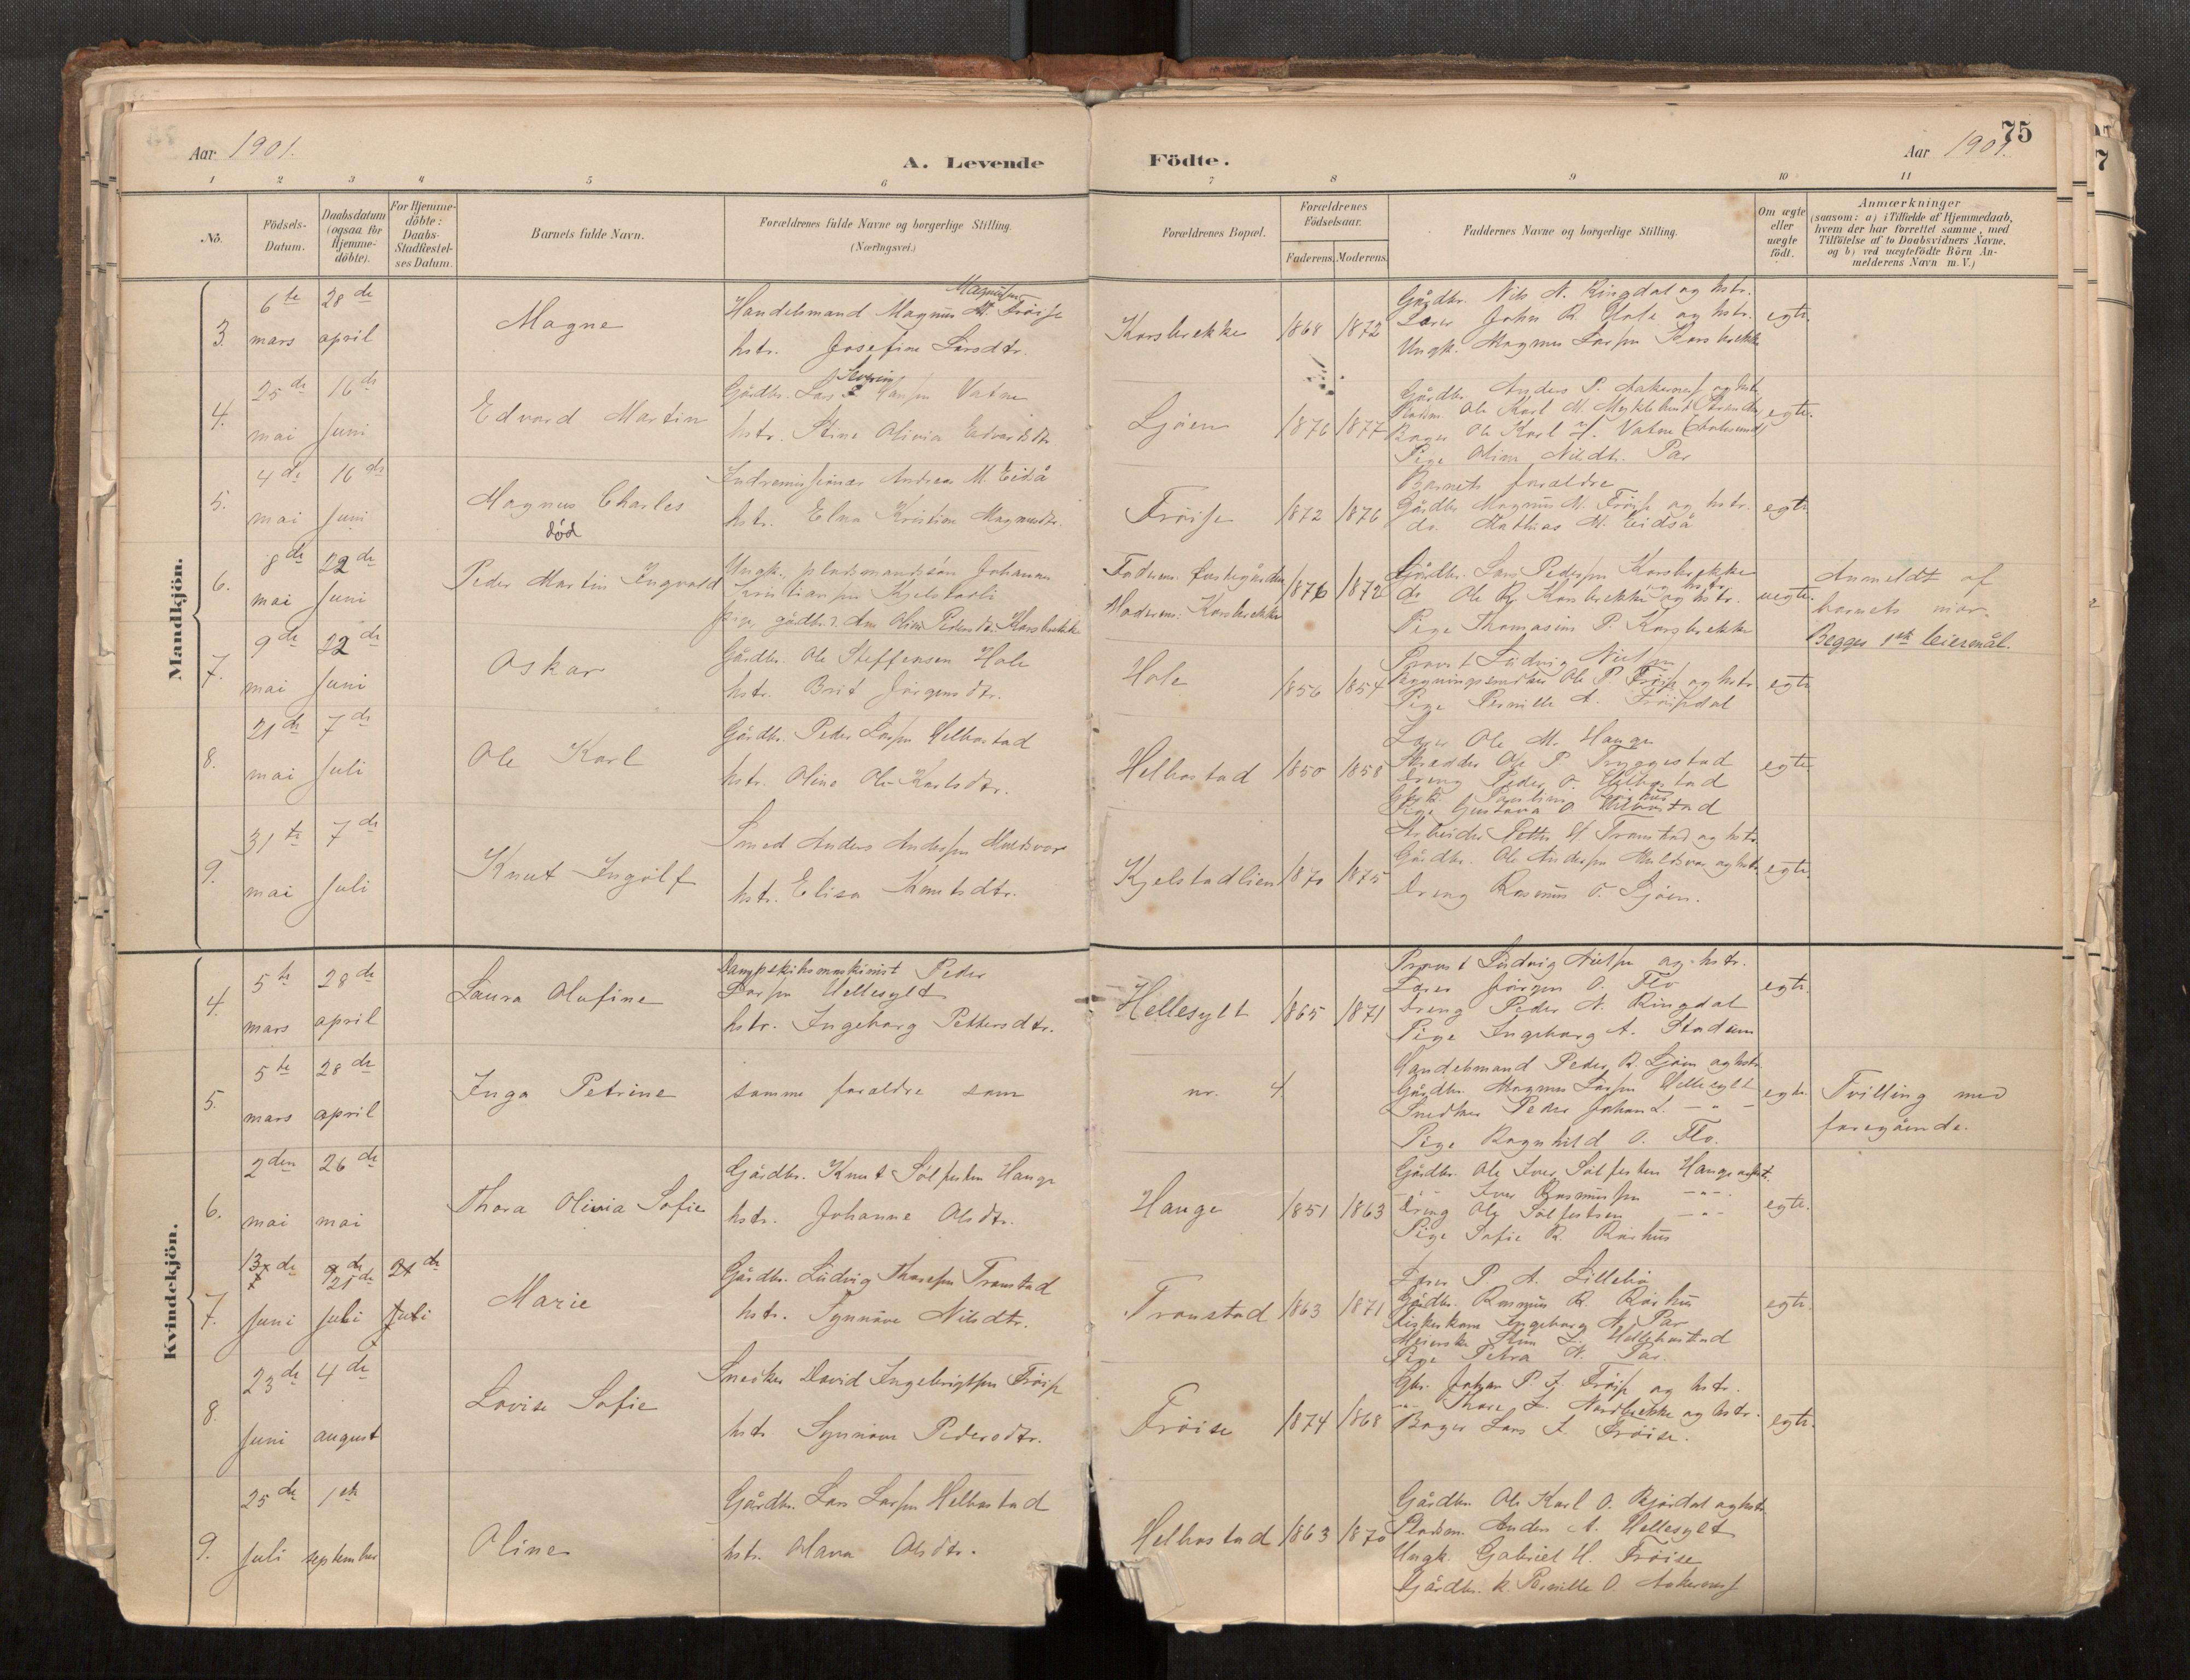 75
Aar 1901.
A. Levende Födte.
Aar 1901.
1 2 3 4 5 6 7 8 9 10 11
No.
Födsels-
Datum.
Daabsdatum
(ogsaa for
Hjemme-
döbte).
For Hjemme-
döbte:
Daabs-
Stadfæstel-
ses Datum.
Barnets fulde Navn.
Forældrenes fulde Navne og borgerlige Stilling.
(Næringsvei.)
Forældrenes Bopæl.
Forældrenes
Födselsaar.
Faderens.
Moderens.
Faddernes Navne og borgerlige Stilling.
Om ægte
eller
uægte
födt.
Anmærkninger
(saasom: a) i Tilfælde af Hjemmedaab,
hvem der har forrettet samme, med
Tilföielse af to Daabsvidners Navne.
og b) ved uægtefödte Börn An-
melderens Navn m. V.)
Mandkjön.
3.
6te mars
28de april
Magne
Handelsmand Magnus M. Frøise
hstr. Josefine Larsdtr.
Korsbrekke
1868
1872
Gårdbr. Nils A. Ringdal og hstr.
Lærer John R. Hole og hstr.
Ungk. Magnus Larsen Korsbrekke
egte.
4.
25de mai
16de Juni
Edvard Martin
Gårdbr. Lars Severin Hansen Vatne
hstr. Stine Olivia Edvardsdtr.
Ljøen
1876
1877
Gårdbr. Anders P. Aakernes og hstr.
Ole Karl M. Myklebust
Bager Ole Karl H. Vatne
Pige Oline Nilsdtr. Par
egte.
5.
4de mai
16de Juni
Magnus Charles
død
Indremissionær Andreas M. Eidså
hstr. Elna Kristine Magnusdtr.
Frøise
1872
1876
Barnets forældre
Gårdbr. Magnus M. Frøise og hstr.
do. Mathias M. Eidså
egte.
6.
8de mai
22de Juni
Peder Martin Ingvald
Ungk. pladsmandssøn Johannes
Kristiansen Kjelstadli
pige, gådbr.d. Ane Oline Pedersdtr. Korsbrekke
Faderens:
Moderens: Korsbrekke
1876
1872
Gårdbr. Lars Pedersen Korsbrekke
do. Ole R. Korsbrekke og hstr.
Pige Thomasine P. Korsbrekke
uegte.
Anmeldt af
barnets mor.
Begges 1ste leiermål.
7.
9de mai
22de Juni
Oskar
Gårdbr. Ole Steffensen Hole
hstr. Brit Jørgensdtr.
Hole
1856
1854
Provst Ludvig Nielsen
Bygningssnedker Ole P. Frøise og hstr.
Pige Pernille A. Frøisdal
egte
8.
21de mai
7de Juli
Ole Karl
Gårdbr. Peder Larsen Helbostad
hstr. Oline Ole-Karlsdtr.
Helbostad
1850
1858
Lærer Ole M. Hauge
Skrædder Ole P. Tryggestad
Dreng Peder O. Helbostad
Pige Gustava O. Helbostad
egte
9.
31te mai
7de Juli
Knut Ingolf
Smed Anders Andersen Muldsvor
hstr. Elisa Knutsdtr.
Kjelstadlien
1870
1875
Arbeider Petter H. Tronstad og hstr.
Gårdbr. Ole Andersen Muldsvor og hstr.
Dreng Rasmus O. Ljøen.
egte.
Kvindekjön.
4.
5te mars
28de april
Laura Olufine
Dampskibsmaskinist Peder
Larsen Hellesylt
hstr. Ingeborg Pettersdtr.
Hellesylt
1865
1871
Provst Ludvig Nielsen og hstr.
Lærer Jørgen O. Flo
Dreng Peder N. Ringdal
Pige Ingeborg A. Stadeim
egte.
5.
5te mars
28de april
Inga Petrine
samme forældre som
nr. 4
Handelsmand Peder R. Ljøen og hstr.
Gårdbr. Magnus Larsen Hellesylt
Snedker Peder Johan L. - " -
Pige Ragnhild O. Flo.
egte.
Tvilling med
foregående.
6.
2den mai
26de mai
Thora Olivia Sofie
Gårdbr. Knut Sølfesten Hauge
hstr. Johanne Olsdtr.
Hauge
1851
1863
Gårdbr. Ole Iver Sølfesten Hauge og hstr.
Iver Rasmussen - " -
Dreng Ole Sølfestsen - " -
Pige Sofie R. Rørhus
egte.
7.
13de Juni
21de Juli
21de Juli
Marie
Gårdbr. Ludvig Thoresen Tronstad
hstr. Synnøve Nilsdtr.
Tronstad
1863
1871
Lærer P. A. Lillebø
Gårdbr. Rasmus R. Rørhus
Ingeborg N. Par
Meierske Stine L. Hellebostad
Pige Petra N. Par.
egte.
8.
23de Juni
4de august
Lovise Sofie
Snedker David Ingebrigtsen Frøise
hstr. Synnøve Pedersdtr.
Frøise
1874
1868
Gbr. Johan P. I. Frøise og hstr.
- " - Thore L. Nordbrekke og hstr.
Bager Lars I. Frøise.
egte.
9.
25de Juli
1ste september
Oline
Gårdbr. Lars Larsen Helbostad
hstr. Olava Olsdtr.
Helbostad
1863
1870
Gårdbr. Ole Karl O. Bjørdal og hstr.
Pladsm. Anders A. Hellesylt
Ungk. Gabriel H. Frøise
Gårdbr. k. Pernille O. Aakernes